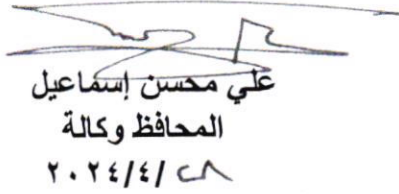 علي محسن إسماعيل
المحافظ وكالة
٢٠٢٤/٤/٢٨